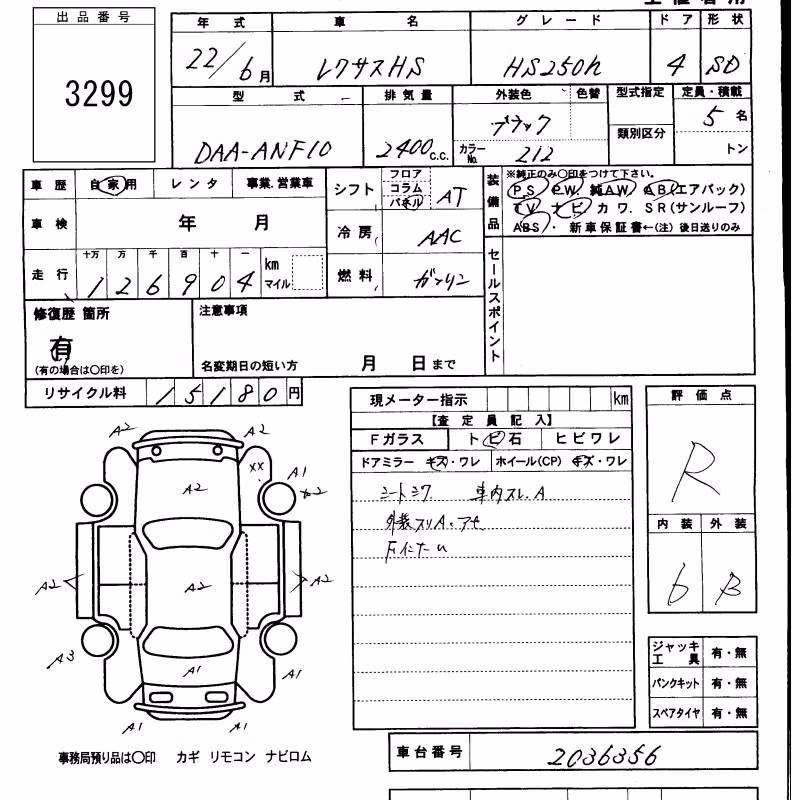 出品番号
3299
年式 車名 グレード ドア 形状
22/6月 レクサスHS HS250h 4 SD
型式 排気量 外装色 色替 型式指定 定員・積載
DAA-ANF10 2400c.c. ブラック 5名
カラーNo. 212 類別区分 トン
車歴 自家用 レンタ 事業.営業車
車検 年 月
走行 十万 万 千 百 十 一 km マイル
126904
シフト フロア コラム パネル AT
冷房 AAC
燃料 ガソリン
装備品 ※純正のみ〇印をつけて下さい。
PS PW. 純AW. AB(エアバック)
TV ナビ カワ. SR(サンルーフ)
ABS・ 新車保証書←(注) 後日送りのみ
セールスポイント
修復歴 箇所
有
(有の場合は〇印を)
注意事項
名変期日の短い方 月 日まで
リサイクル料 15180円
現メーター指示 km
【査定員記入】
Fガラス トビ石 ヒビワレ
ドアミラー キズ・ワレ ホイール(CP) キズ・ワレ
シートシワ 車内スレ.A
F
評価点
R
内装 外装
6 B
A2 A2
XX A1
A2
A2
A2 A2 A2
A3 A1 A1
A1 A1
ジャッキ工具 有・無
パンクキット 有・無
スペアタイヤ 有・無
事務局預り品は〇印 カギ リモコン ナビロム
車台番号 2036356